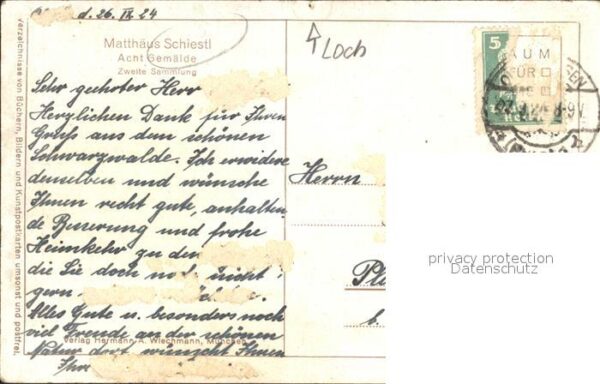 d. 26. IX. 24
Matthäus Schiestl
Acht Gemälde
Zweite Sammlung
Loch
Sehr geehrter Herr
Herzlichen Dank für Ihren
Gruß aus dem schönen
Schwarzwalde. Ich erwidere
denselben und wünsche
Ihnen recht gute, anhalten
de Besserung und frohe
Heimkehr zu den
die Sie doch nicht
gern.
Alles Gute u. besonders noch
viel Freude an der schönen
Natur dort wünscht Ihnen
Ihr
Verlag Hermann A. Wiechmann, München
Verzeichnisse von Büchern, Bildern und Kunstpostkarten umsonst und postfrei.
5
AUM
FÜR
8-9V
Herrn
Pl
b
privacy protection
Datenschutz